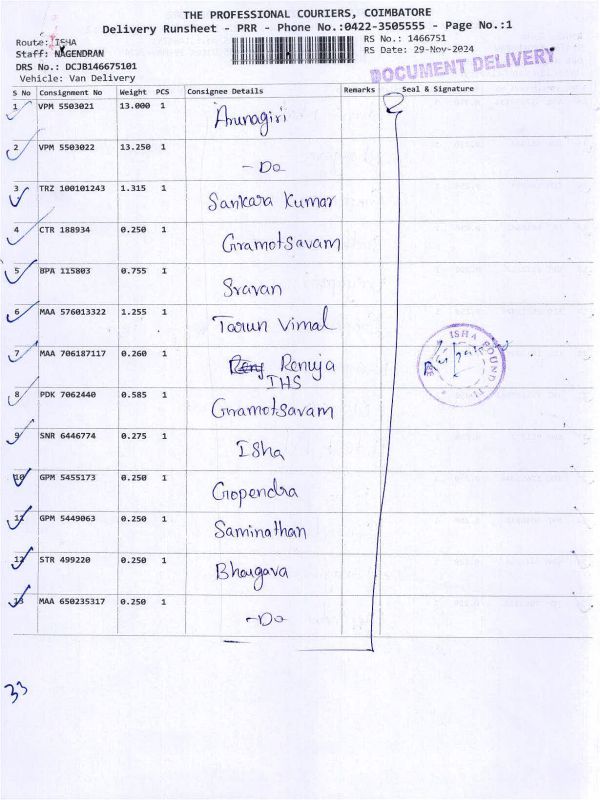 THE PROFESSIONAL COURIERS, COIMBATORE
Delivery Runsheet - PRR - Phone No.:0422-3505555 - Page No.:1
Route: ISHA
Staff: NAGENDRAN
DRS No.: DCJB146675101
Vehicle: Van Delivery
RS No.: 1466751
RS Date: 29-Nov-2024
DOCUMENT DELIVERY
S No Consignment No Weight PCS Consignee Details Remarks Seal & Signature
1 VPM 5503021 13.000 1 Arunagiri
2 VPM 5503022 13.250 1 - Do
3 TRZ 100101243 1.315 1 Sankara Kumar
4 CTR 188934 0.250 1 Gramotsavam
5 BPA 115803 0.755 1 Sravan
6 MAA 576013322 1.255 1 Tarun Vimal
7 MAA 706187117 0.260 1 Renuja
IHS
8 PDK 7062440 0.585 1 Gramotsavam
9 SNR 6446774 0.275 1 Isha
10 GPM 5455173 0.250 1 Gopendra
11 GPM 5449063 0.250 1 Saminathan
12 STR 499220 0.250 1 Bhargava
13 MAA 650235317 0.250 1 - Do
ISHA FOUND
33